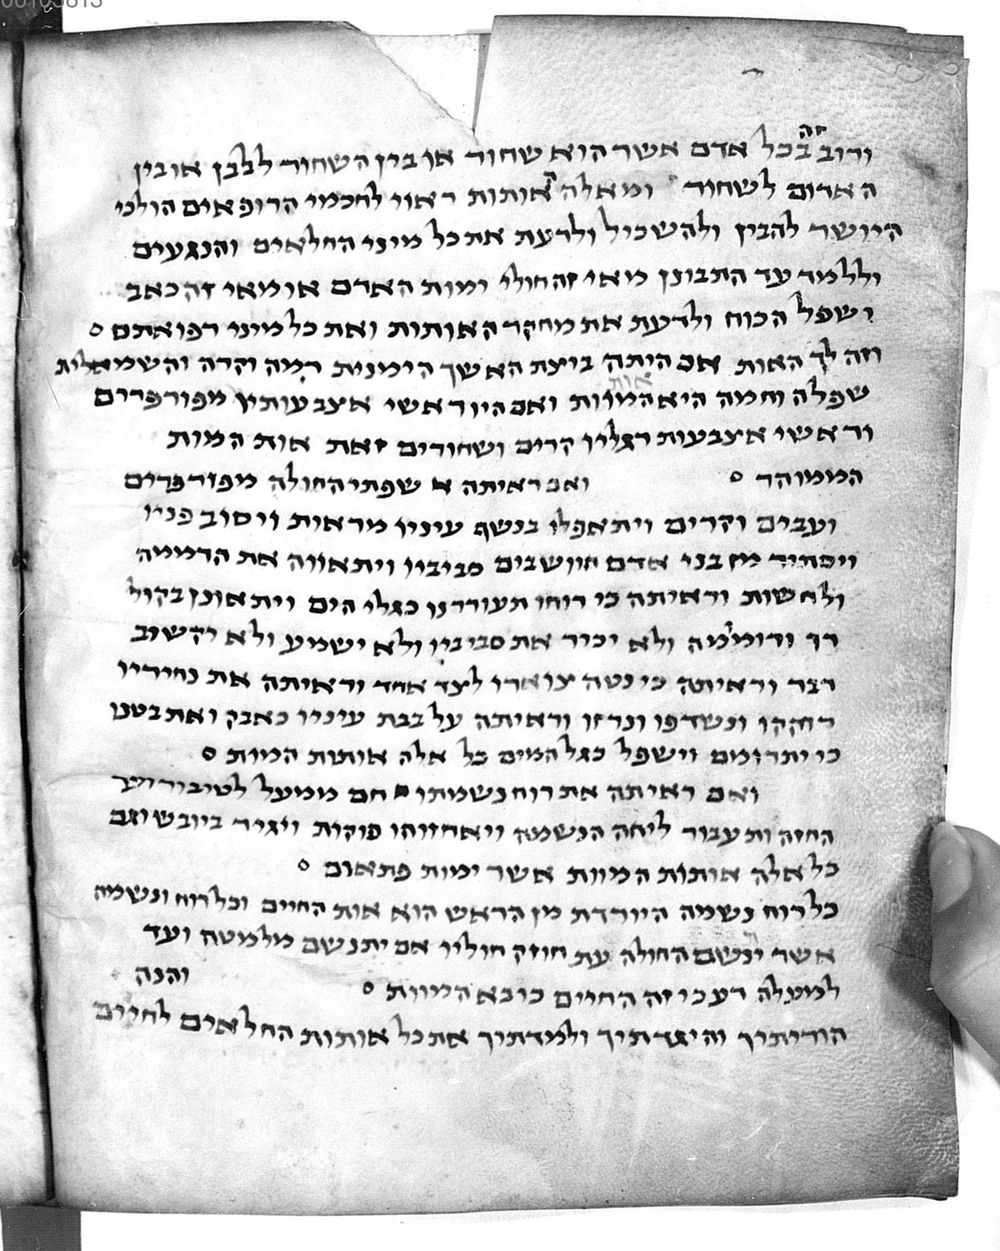 00103813
זה
ורוב בכל אדם אשר הוא שחור או בין השחור ללבן או בין
האדום לשחור ומאלה האותות ראוי לחכמי הרופאים הולכי
היושר להבין ולהשכיל ולדעת את כל מיני החלאים והנגעים
וללמד עד התבונן מאי זה חולי ימות האדם או מאי זה כאב
ושפל הכוח ולדעת את מחקר האותות ואת כל מיני רפואתם
וזה לך האות אם היתה ביצת האשך הימנית רמה וקרה והשמאלית
אות
שפלה וחמה היא המוות ואם היו ראשי אצבעותיו מפורפרים
וראשי אצבעות רגליו קרים ושחורים זאת אות המות
הממוהר ואם ראיתה שפתי החולה מפורפרים
ועבים וקרים ויתאפלו בנשף עיניו מראות ויסוב פניו
ויסתיר מן בני אדם היושבים סביביו ויתאווה את הדממה
ולחשות וראיתה כי רוחו תעורר נו כגלי הים ויתאונן בקול
רך ודוממה ולא יכיר את סביביו ולא ישמע ולא יקשוב
דבר וראיתה כי נטה צוארו לצד אחד וראיתה את נחיריו
רוקקו ונשדפו ונרזו וראיתה על בבת עיניו כאבק ואת בטנו
כי יתרומם וישפל כגל המים כל אלה אותות המוות
ואם ראיתה את רוח נשמתו חם ממעל לטיבור
החזה ותעבור ליחה הנשמה ויאחזוהו פוקות ויגיר ביובש וגם
כל אלה אותות המוות אשר ימות פתאום
כל רוח נשמה היורדת מן הראש הוא אות החיים וכל רוח ונשמה
אשר ינשם החולה עת חוזק חוליו אם יתנשם מלמטה ועד
למעלה דע כי זה החיים כי בא המוות והנה
הוריתיך והיגדתיך ולמדתיך את כל אותות החלאים לחיים